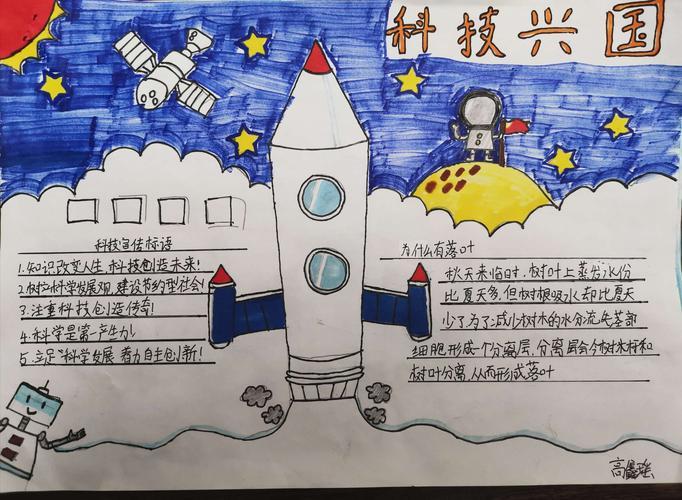 科技兴国
科技宣传标语
1.知识改变人生,科技创造未来!
2.树立科学发展观,建设节约型社会!
3.注重科技创造传奇!
4.科学是第一产生力
5.立足科学发展 着力自主创新!
为什么有落叶
秋天来临时,树叶上蒸发水份
比夏天多.但树根吸水却比夏天
少了为了减少树木的水分流失茎部
细胞形成一个分离层,分离层会令树木杆和
树叶分离,从而形成落叶
高鑫